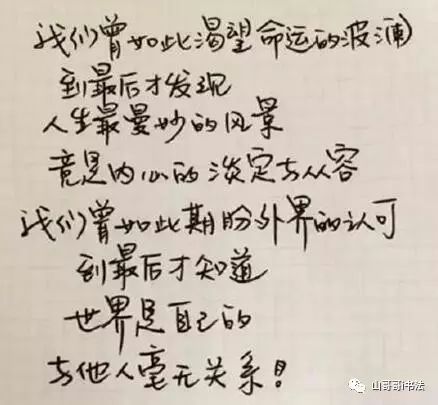 我们曾如此渴望命运的波澜
到最后才发现
人生最曼妙的风景
竟是内心的淡定与从容
我们曾如此期盼外界的认可
到最后才知道
世界是自己的
与他人毫无关系!
山哥哥i书法